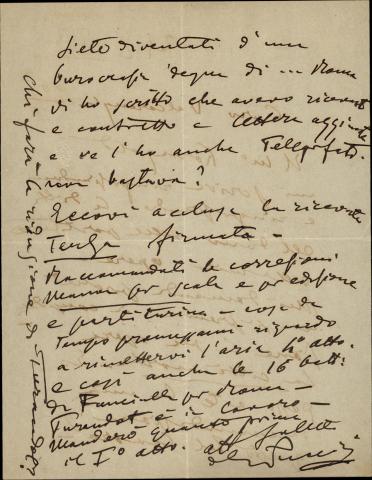 siete diventati d'una
burocrazia degna di ... Roma
Vi ho scritto che avevo ricevuto
e contratto e lettera aggiunta
e ve l'ho anche telegrafato.
non bastava?
Eccovi acclusa la ricevuta
Terza firmata –
Raccomandati le correzioni
Manon per Scala e per edizione
e partitura – cose da
tempo promessami riguardo
a rimettervi l'aria 4° atto.
e così anche le 16 batt:
di Fanciulla per Roma –
Turandot è in lavoro –
Manderò quanto prima
il I° atto. aff saluti
Puccini
chi farà la riduzione di Turandot?